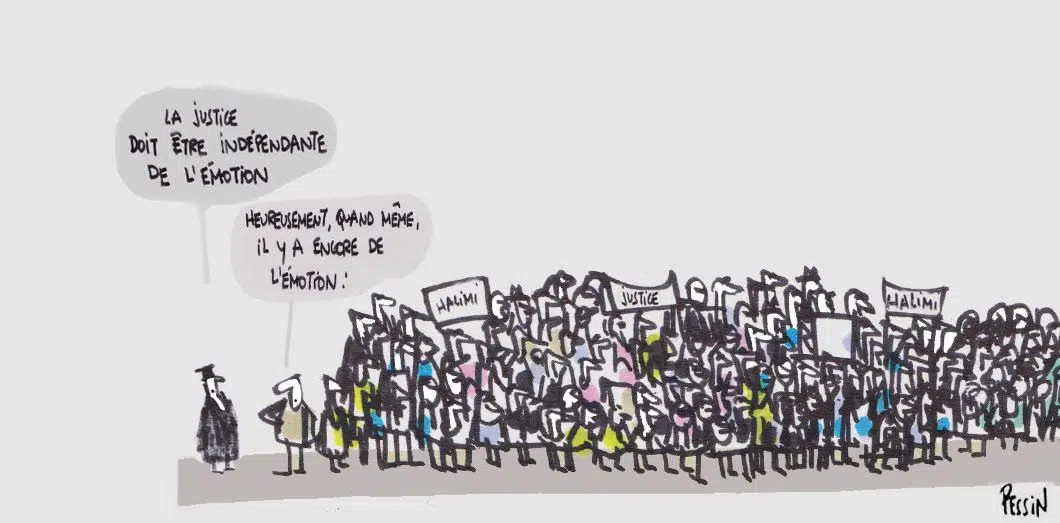 LA JUSTICE
DOIT ÊTRE INDÉPENDANTE
DE L'ÉMOTION
HEUREUSEMENT, QUAND MÊME,
IL Y A ENCORE DE
L'ÉMOTION !
HALIMI
JUSTICE
HALIMI
PESSIN